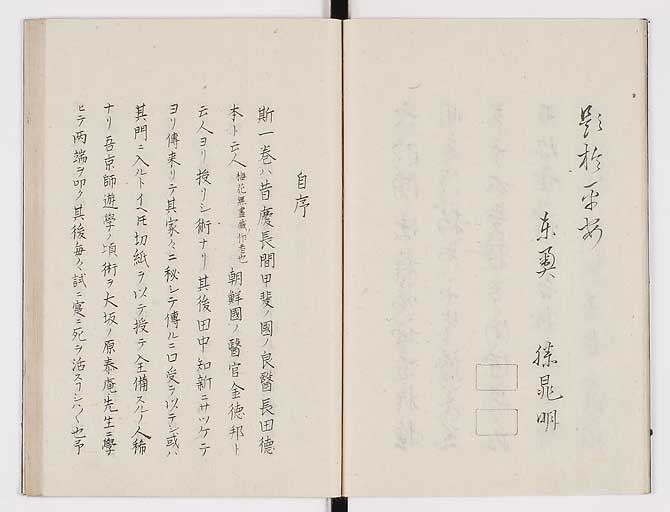 題於平安
東奥 滕晁明
自序
斯一巻ハ昔慶長間甲斐ノ國ノ良醫長田德
本ト云人梅花無盡藏ノ作者也朝鮮國ノ醫官金德邦ト
云人ヨリ授リシ術ナリ其後田中知新ニサツケテ
ヨリ傳来リテ其家々ニ秘シテ傳ルニ口受ヲ以テシ或ハ
其門ニ入ルトイヘ𪜈切紙ヲ以テ授テ全備スルノ人稀
ナリ吾京師遊學ノ頃術ヲ大坂ノ原泰庵先生ニ學
ヒテ両端ヲ叩ク其後毎々試ニ寔ニ死ヲ活スヿシハ〱也予